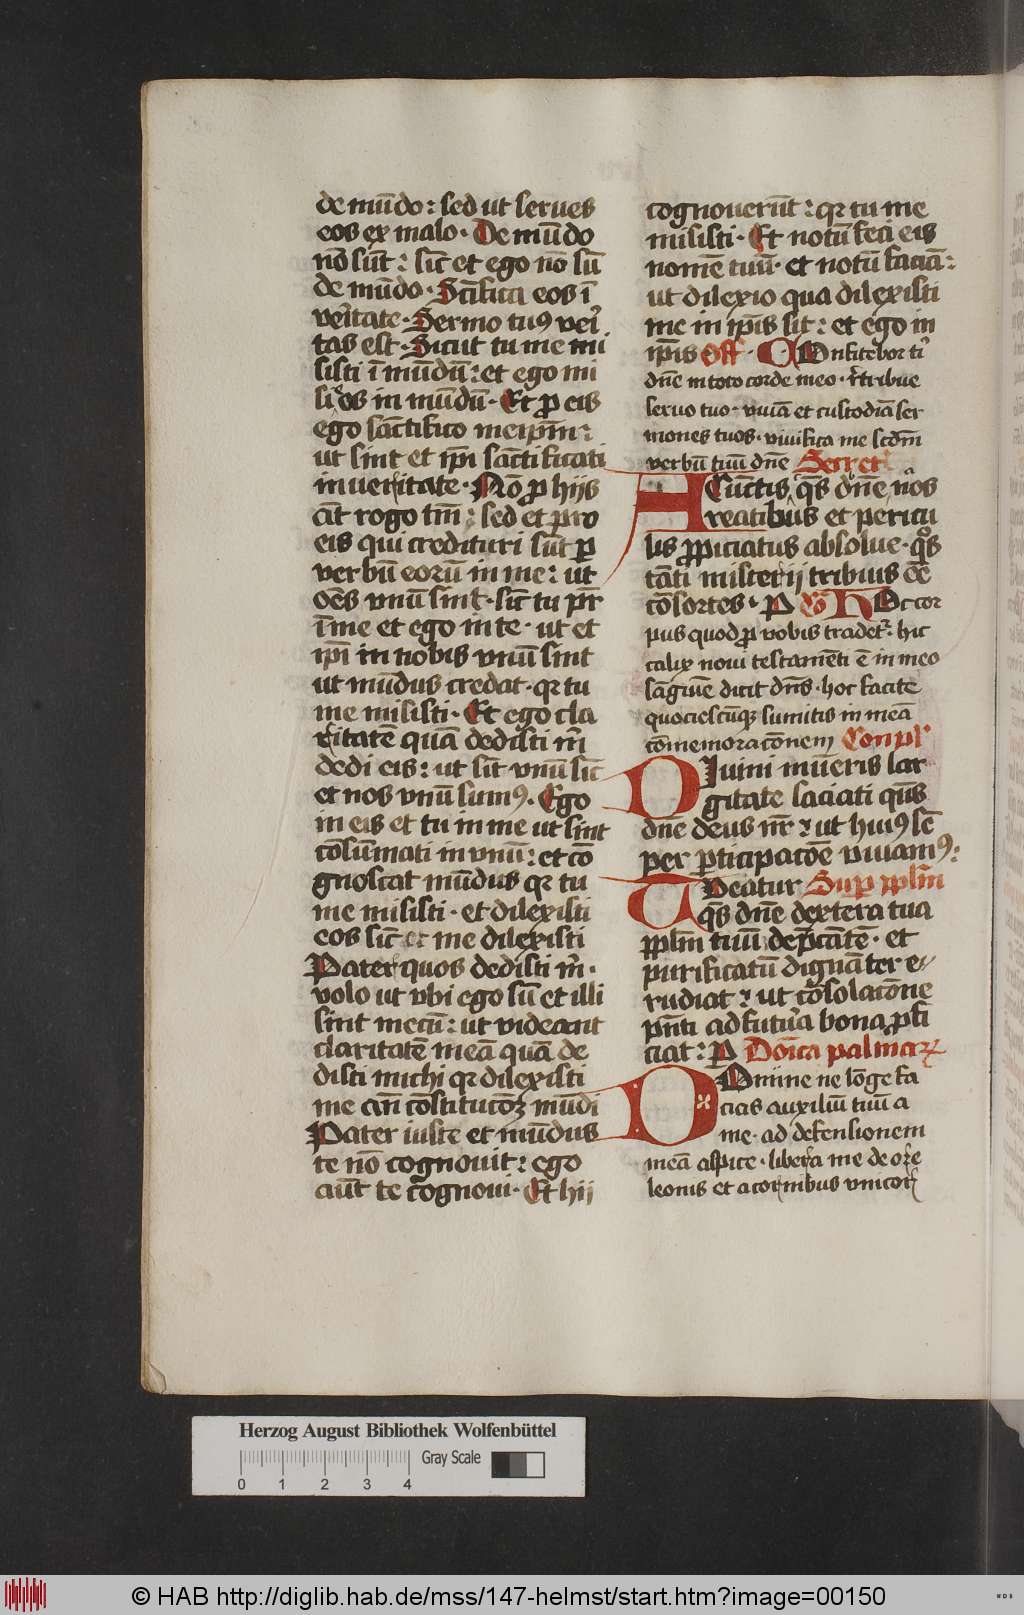 de mūdo: sed ut serues
eos ex malo. De mūdo
nō sūt: sic̄ et ego nō sū
de mūdo. Sc̄ifica eos ī
ver̄itate. Sermo tuꝰ veri
tas est. Sicut tu me mi
sisti ī mūdū: et ego mi
si eos in mūdū. Et p eis
ego sāctifico meip̄m:
ut sint et ip̄i sāctificati
in ueritate. Nō p hijs
aūt rogo tm̄: sed et pro
eis qui credituri sūt p̲
verbū eorū in me: ut
oēs vnū sint. sic̄ tu pr̄
ī me et ego in te. ut et
ip̄i in nobis vnū sint
ut mūdus credat. qꝛ tu
me misisti. Et ego cla
ritatē quā dedisti m̄
dedi eis: ut sīt vnū sic̄
et nos vnū sumꝰ. Ego
in eis et tu in me ut sint
cōsūmati in vnū: et co
gnoscat mūdus qꝛ tu
me misisti. et dilexisti
eos sic̄ et me dilexisti
Pater quos dedisti m̄.
volo ut vbi ego sū et illi
sint mecū: ut videant
claritatē meā quā de
disti michi qꝛ dilexisti
me an̄ cōstitucōꝫ mūdi
Pater iuste et mūdus
te nō cognouit: ego
aūt te cognoui. Et hij
cognouerūt: qꝛ tu me
misisti. Et notū feci eis
nomē tuū. et notū faciā:
ut dilexio qua dilexisti
me in ip̄is sit: et ego in
ip̄is Off. COnfitebor tī
dn̄e in toto corde meo. r̄tribue
seruo tuo. viuā et custodiā ser
mones tuos. viuifica me scdm̄
verbū tuū dn̄e Secret
A Cūctis qs̄ dn̄e nōs
reatibus et pericu
lis ꝓpiciatus absolue. qͦs
tāti misterij tribuis eē
cōsortes. P Co HOc cor
pus quod ꝓ vobis tradetꝛ. hic
calix noui testamēti ē in meo
sāguīe dicit dn̄s. hoc facite
quociescūqꝫ sumitis in meā
cōmemoracōnem Conpl
DIuini mūeris lar
gitate saciati qūs
dn̄e deus nr̄: ut huiꝰ sc̄
per p̲ticipacōē viuamꝰ:
TUeatur Sup pplm̄
qs̄ dn̄e dextera tua
pplm̄ tuū dep̄cātē. et
purificatū dignāter e
rudiat: ut cōsolacōne
pn̄ti ad futura bona ꝓfi
ciat: P Doīca palmarꝝ
DOmine ne lōge fa
cias auxiliū tuū a
me. ad defensionem
meā aspice. libera me de ore
leonis et a cornibus vnicor
Herzog August Bibliothek Wolfenbüttel
Gray Scale
0 1 2 3 4
© HAB http://diglib.hab.de/mss/147-helmst/start.htm?image=00150